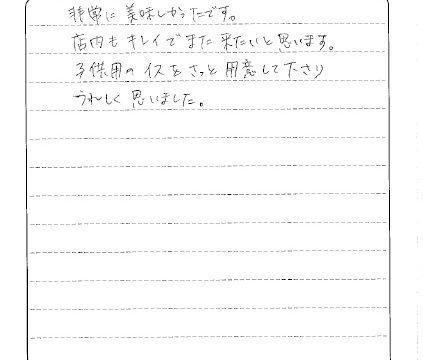 非常に美味しかったです。
店内もキレイでまた来たいと思います。
子供用のイスをさっと用意して下さり
うれしく思いました。